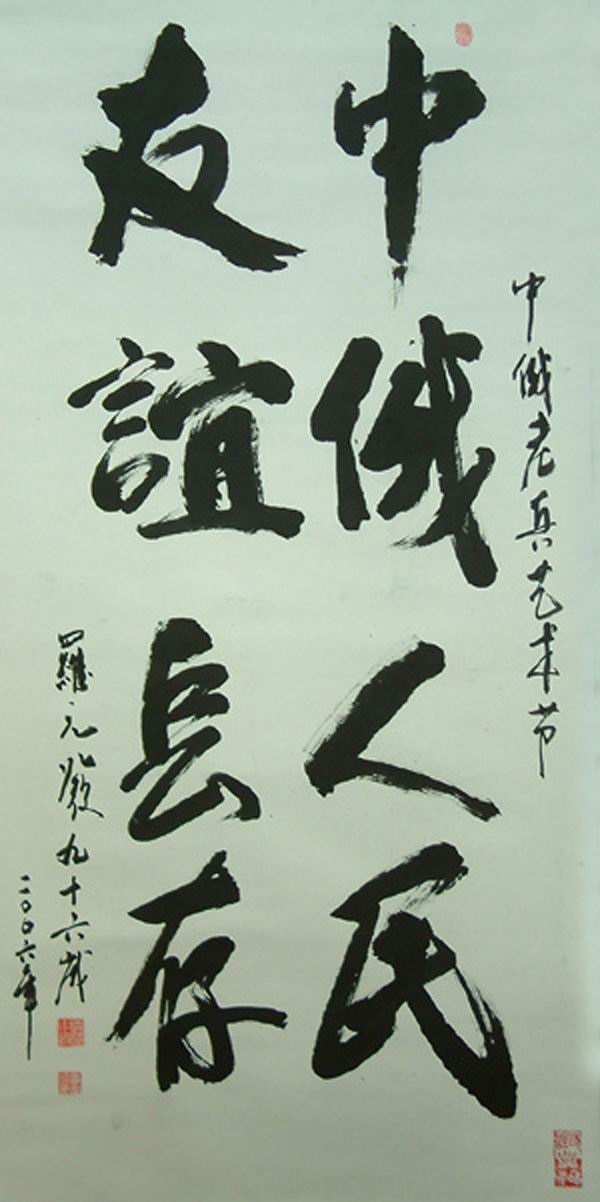 中俄老真艺术节
中俄人民
友誼長存
羅元九十六歲
二〇〇六年